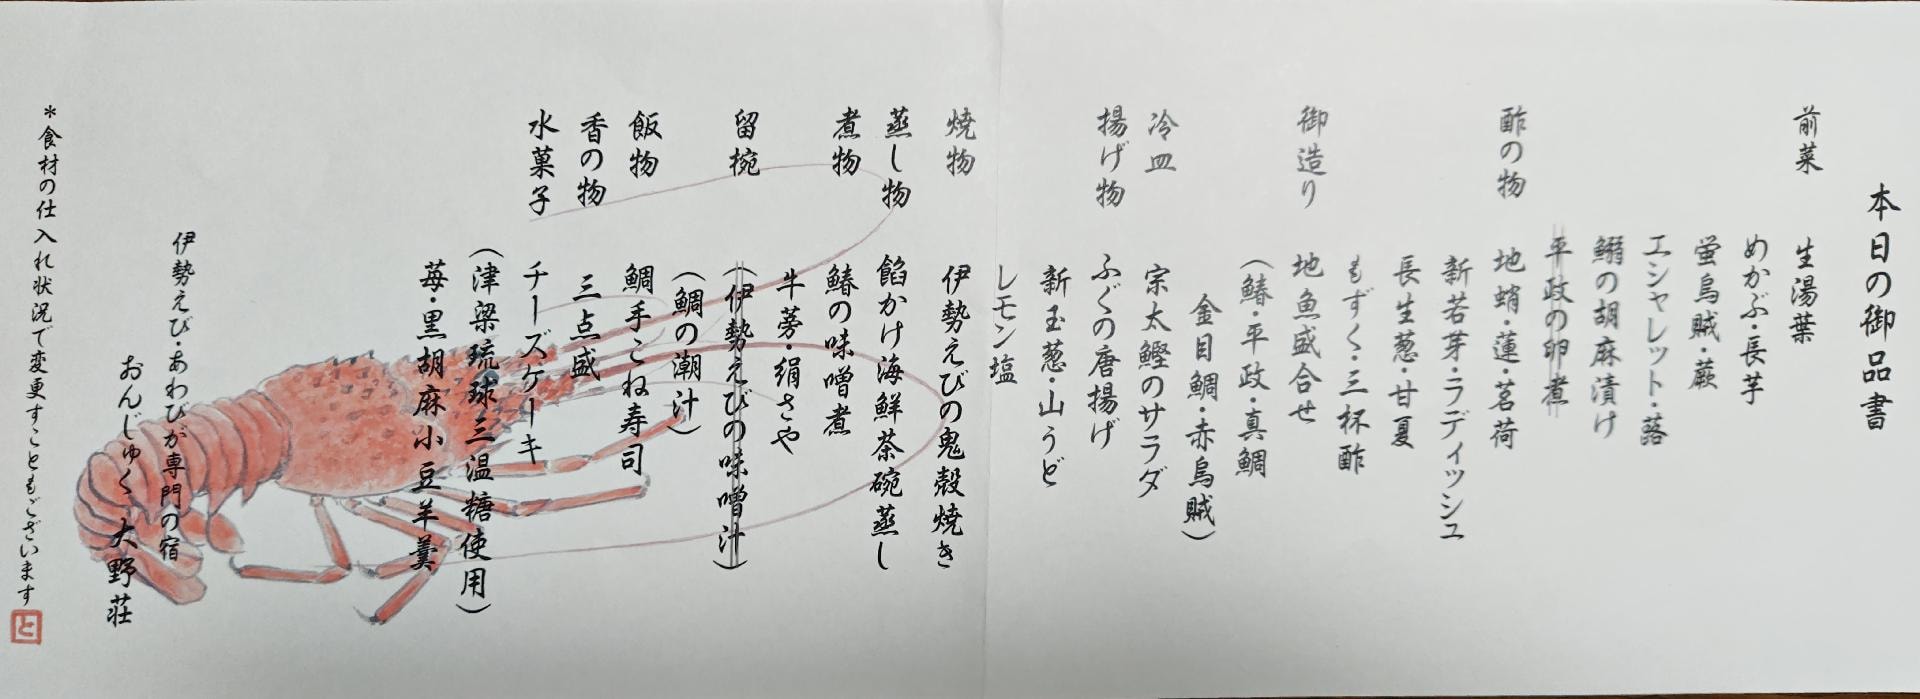 本日の御品書
前菜 生湯葉
めかぶ・長芋
蛍烏賊・蕨
エシャレット・蕗
鰯の胡麻漬け
平政の卵煮
酢の物 地蛸・蓮・茗荷
新若芽・ラディッシュ
長生葱・甘夏
もずく・三杯酢
御造り 地魚盛合せ
(鰆・平政・真鯛
金目鯛・赤烏賊)
冷皿 宗太鰹のサラダ
揚げ物 ふぐの唐揚げ
新玉葱・山うど
レモン塩
焼物 伊勢えびの鬼殻焼き
蒸し物 餡かけ海鮮茶碗蒸し
煮物 鰆の味噌煮
牛蒡・絹さや
留椀 (伊勢えびの味噌汁)
(鯛の潮汁)
飯物 鯛手こね寿司
香の物 三点盛
水菓子 チーズケーキ
(津梁琉球三温糖使用)
苺・黒胡麻小豆羊羹
伊勢えび・あわびが専門の宿
おんじゅく 大野荘
＊食材の仕入れ状況で変更すこともございます
と